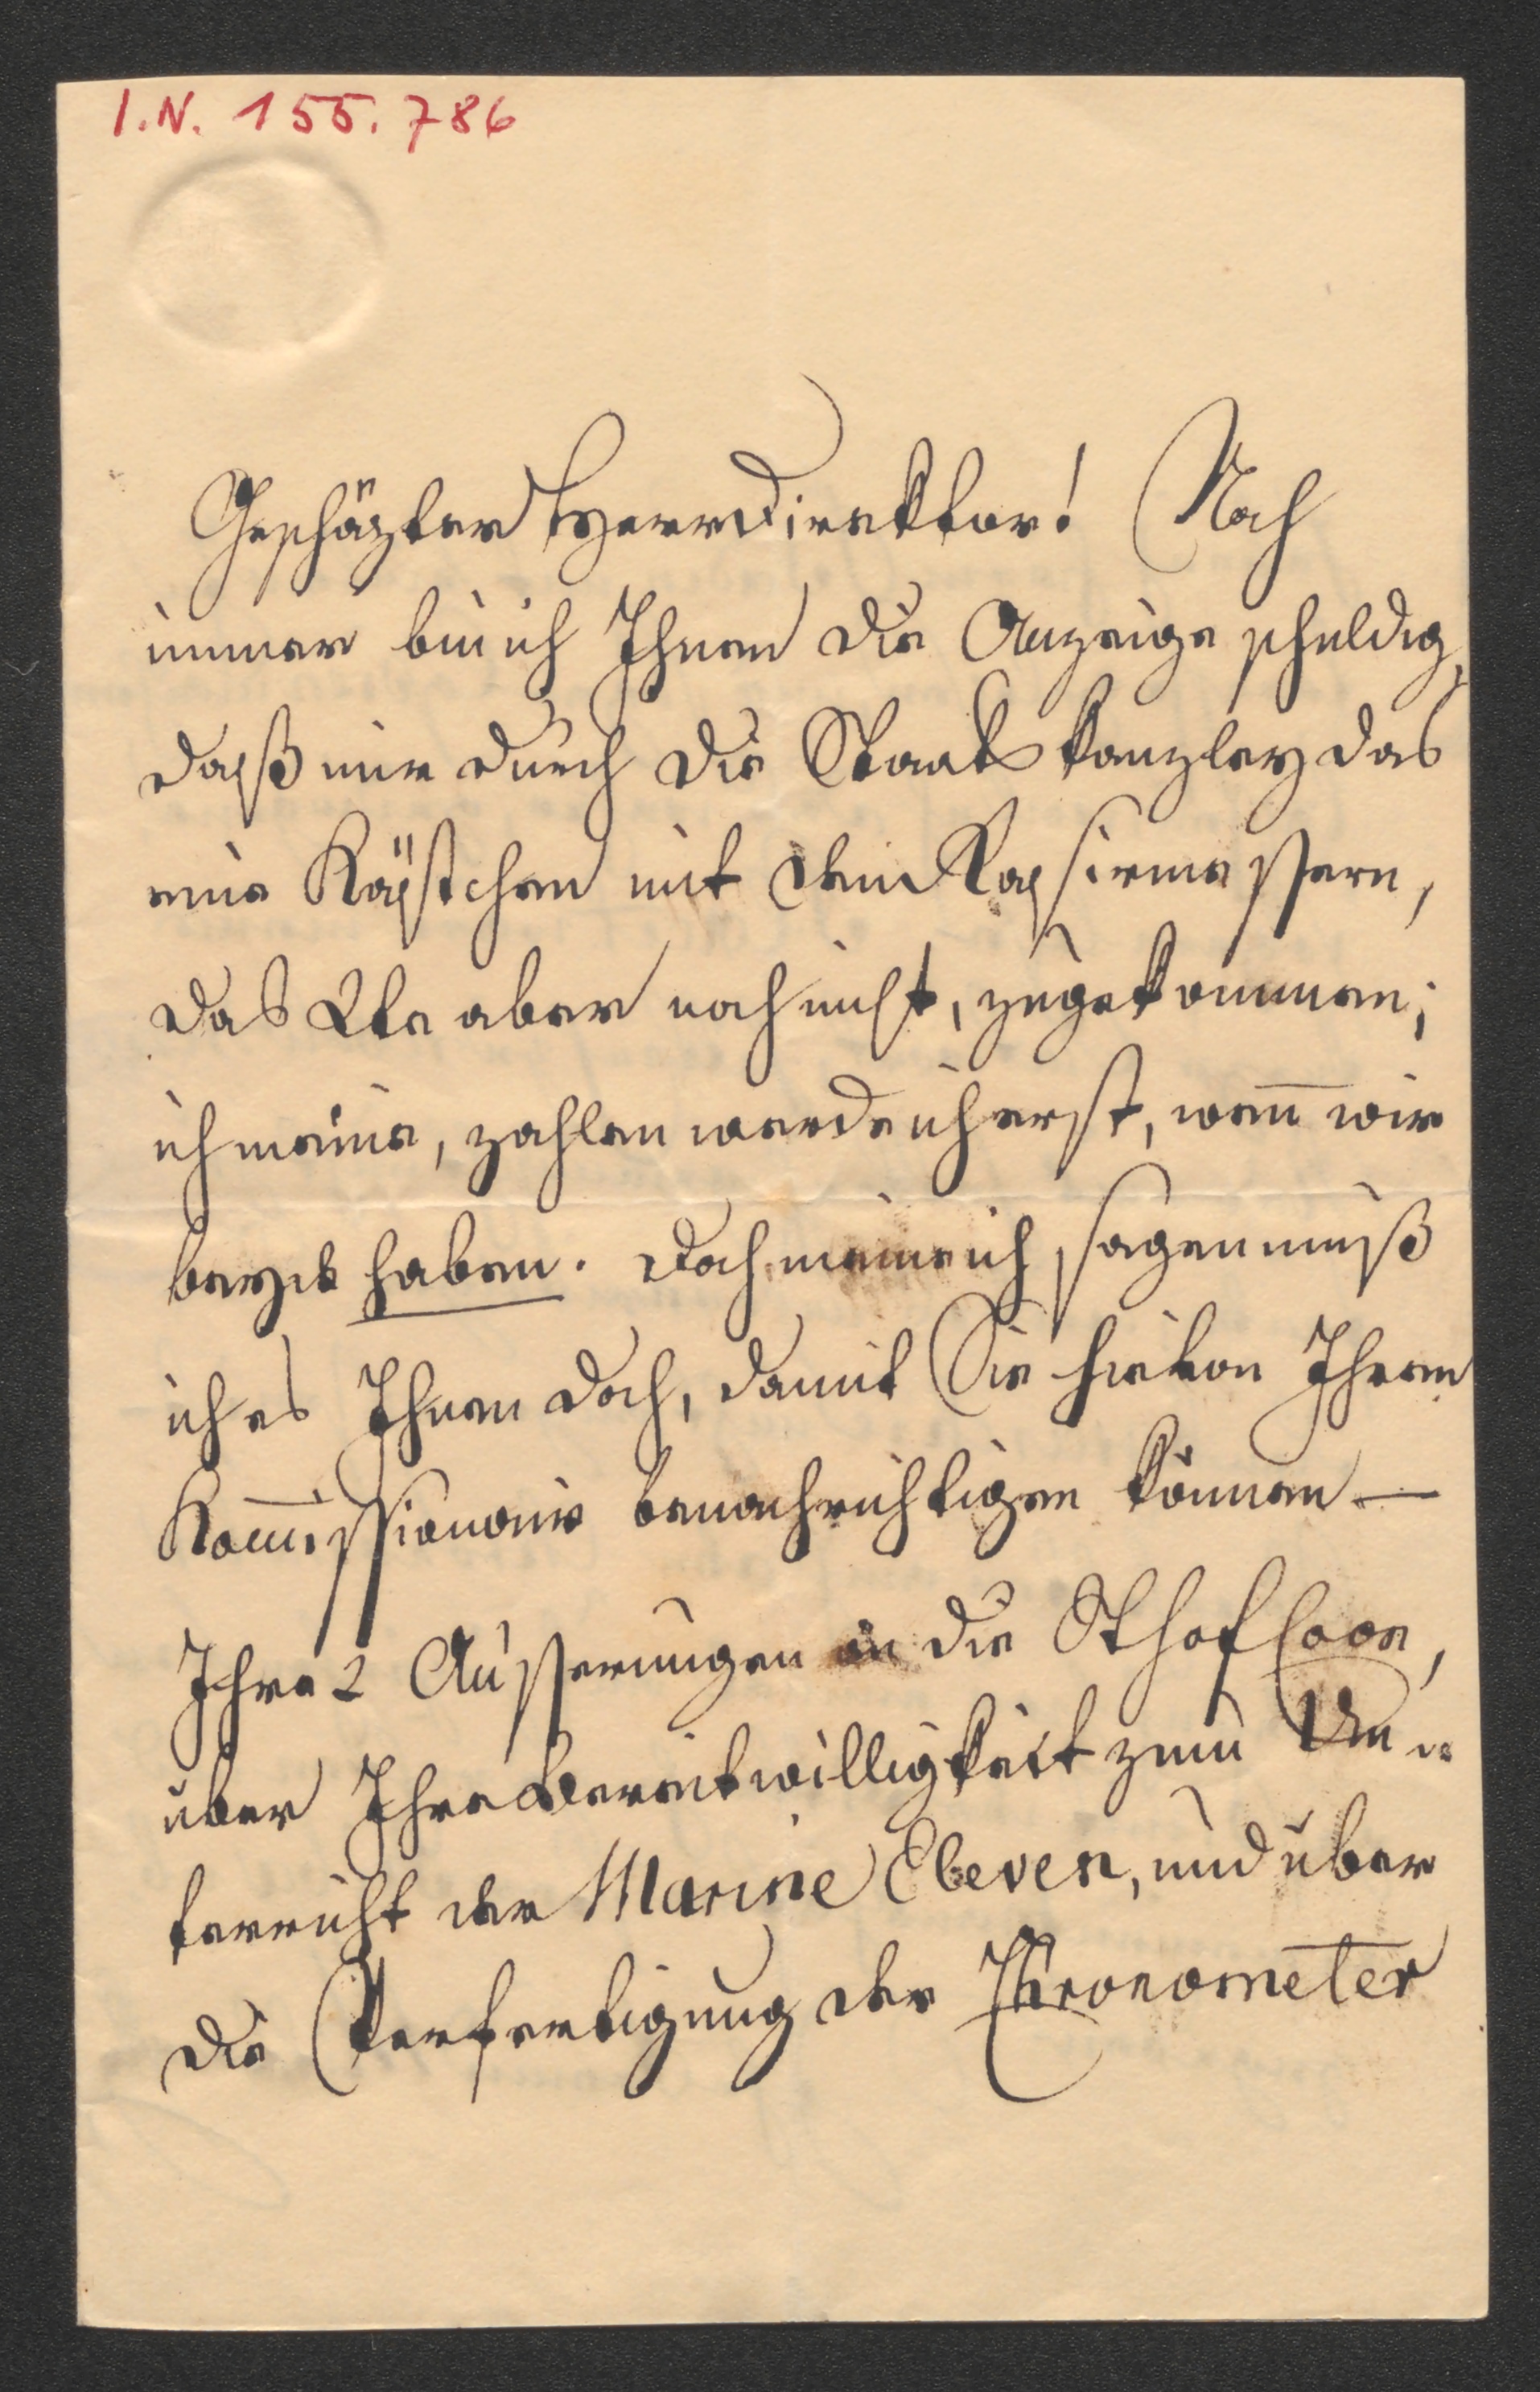 I.N. 155.786
Geschäzter Herr Direktor! Noch
immer bin ich Ihnen die Anzeige schuldig,
daß mir durch die Staatskanzley das
eine Kästchen mit den Rasirmessern,
das 2te aber noch nicht, zugekommen;
ich meine, zahlen werde ich erst, wen̄ wir
beyde haben. Doch meine ich, sagen muß
ich es Ihnen doch, damit Sie hievon Ihren
Kom̄issionair benachrichtigen können —
Ihre 2 Äusserungen an die
über Ihre Bereitwilligkeit zum Un=
terricht der Marine Eleven, und über
die Verfertigung der Chronometer